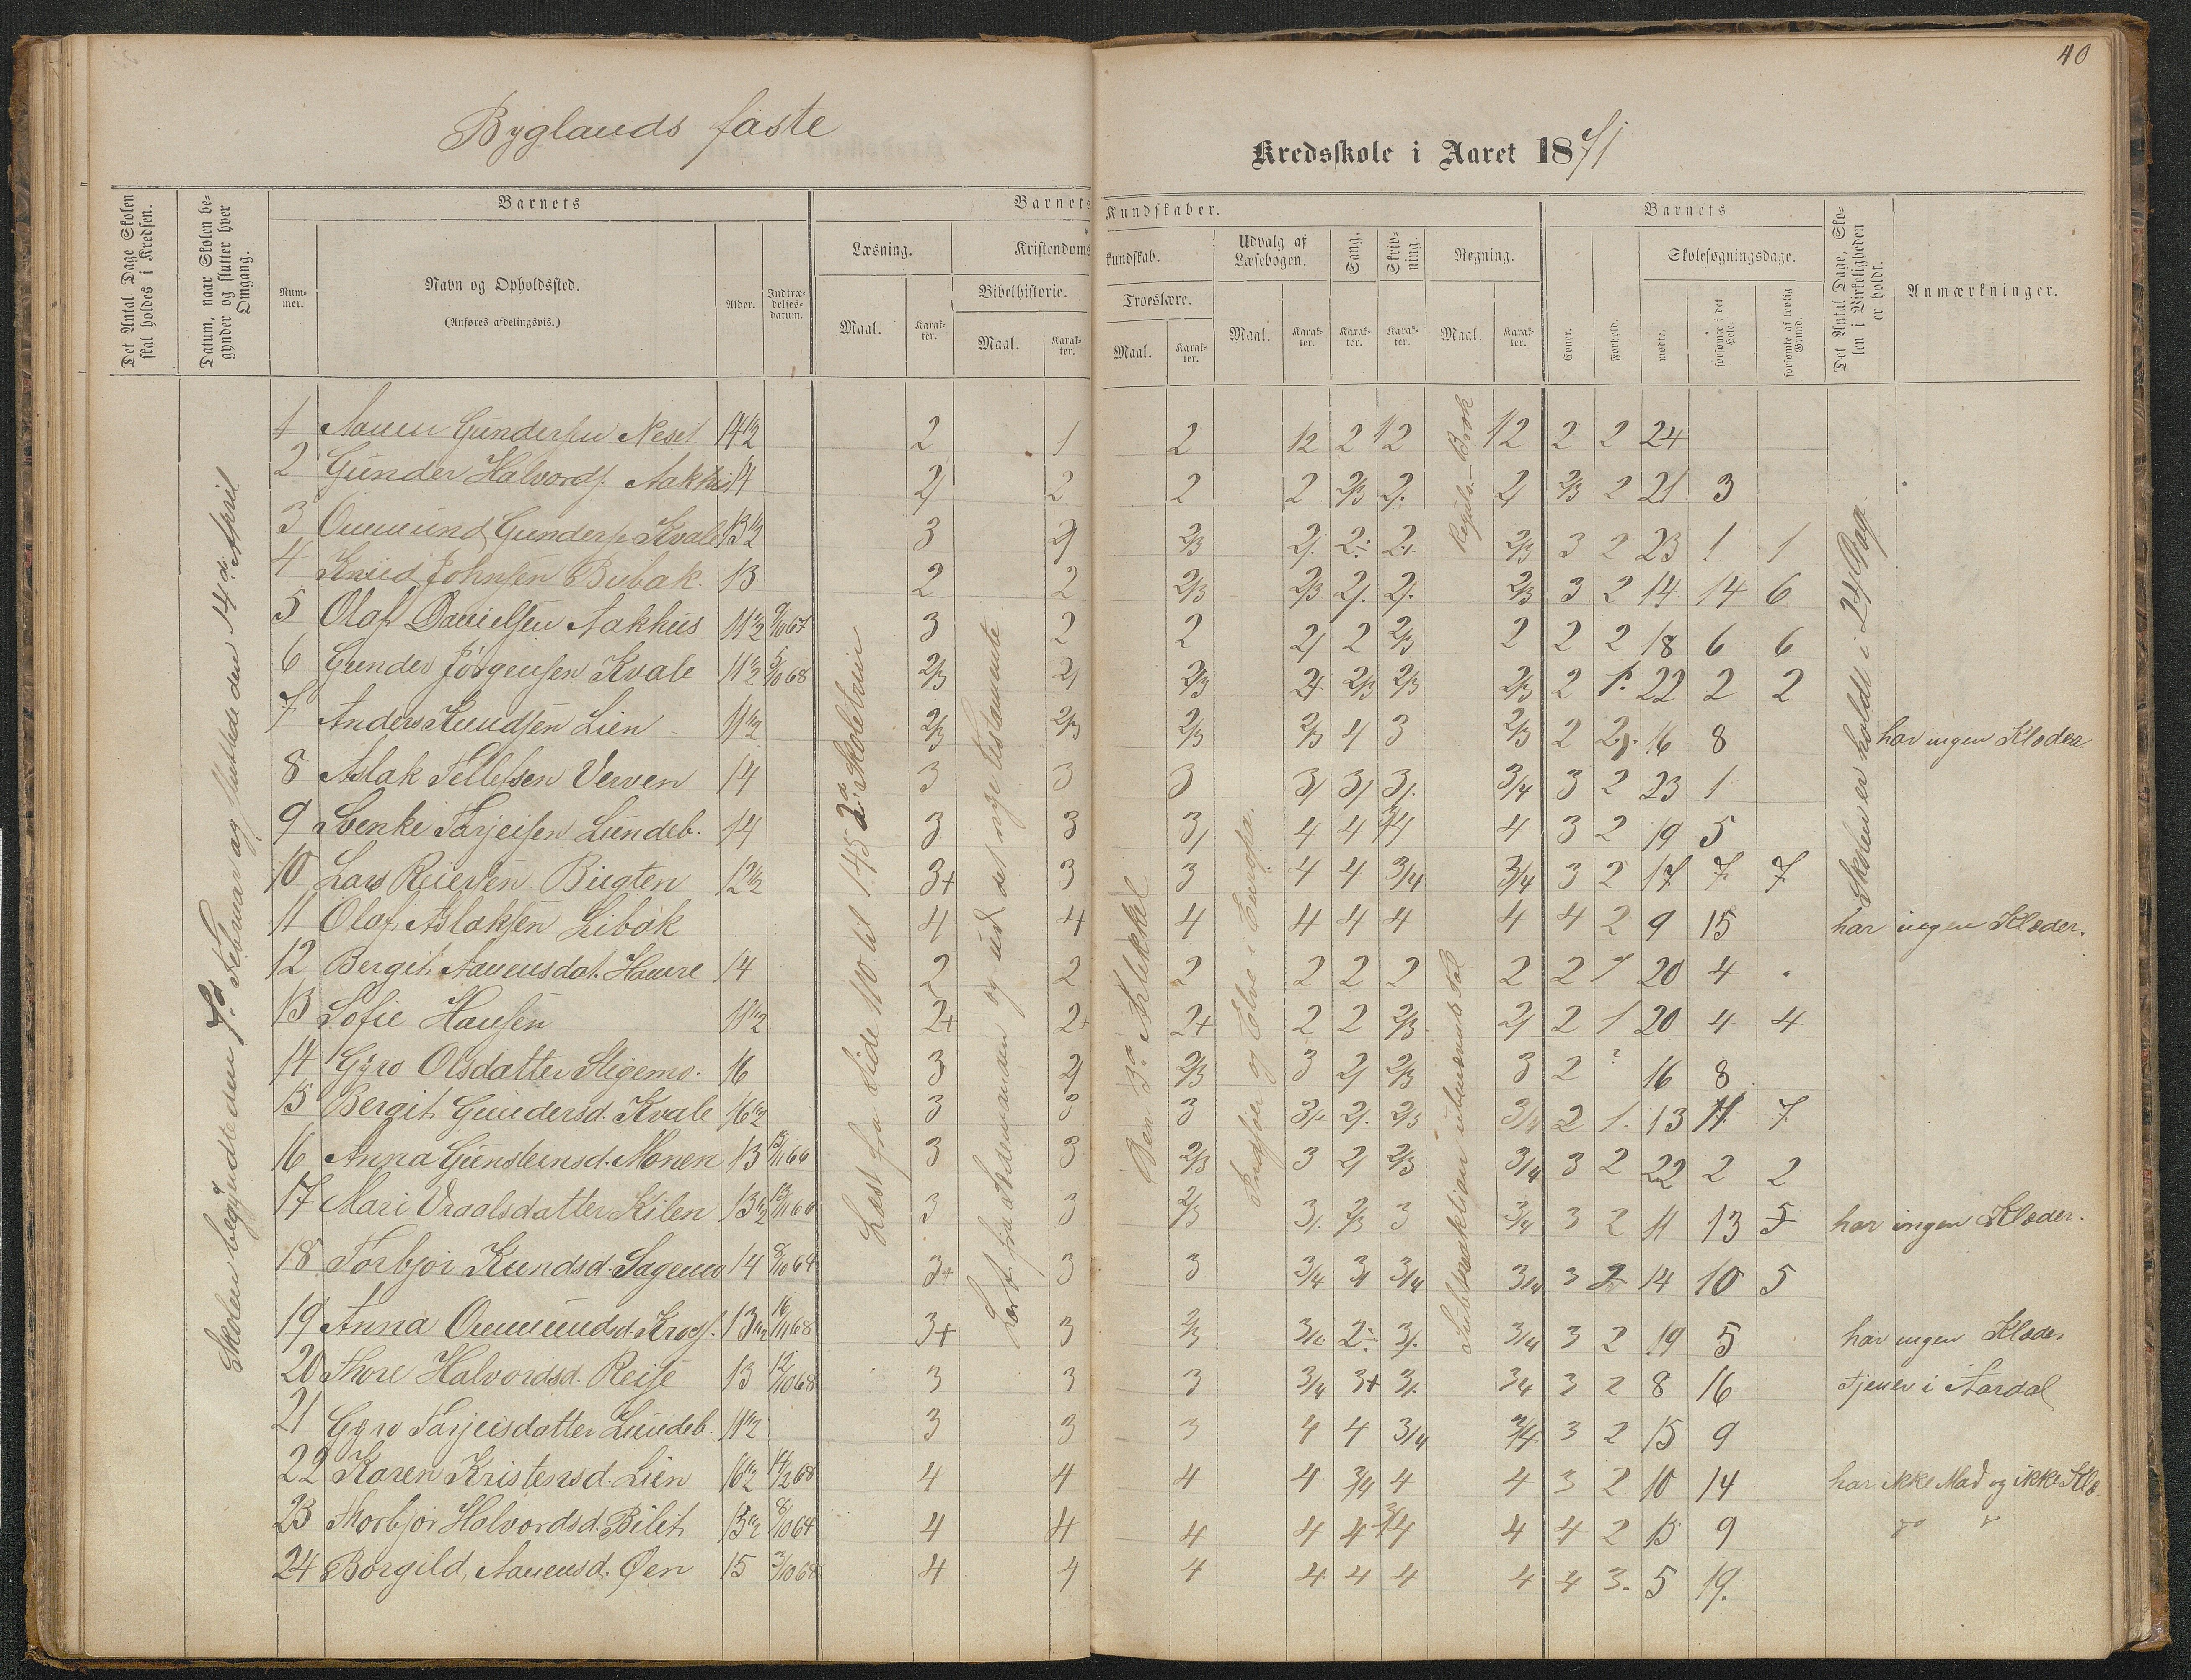 40
Byglands faste
Kredsskole i Aaret 1871
Det Antal Dage Skolen skal holdes i Kredsen.
Datum, naar Skolen begynder og slutter hver Omgang.
Barnets
Barnets Kundskaber.
Barnets
Det Antal Dage, Skolen i Virkeligheden er holdt.
Anmærkninger.
Nummer.
Navn og Opholdssted.
(Anføres afdelingsvis.)
Alder.
Indtrædelsesdatum.
Læsning.
Kristendomskundskab.
Udvalg af Læsebogen.
Sang.
Skrivning.
Regning.
Evner.
Forhold.
Skolesøgningsdage.
Bibelhistorie.
Troeslære.
Maal.
Karakter.
Maal.
Karakter.
Maal.
Karakter.
Maal.
Karakter.
Karakter.
Karakter.
Maal.
Karakter.
mødte.
forsømte i det Hele.
forsømte af lovlig Grund.
Skolen begyndte den 7de Februar og sluttede den 14de April
Læst fra Side 110 til 145 2d Skoletrin
Lært fra og ud det nye Testamente
Den 3d Artikkel
Indsjøer og Elve i Europa.
Regula- Brøk
Subtraktion i ubenævnte Tal
Skolen er holdt i 24 Dag.
1 Aanen Gundersen Neset 14 1/2 2 1 2 12 2 12 12 2 2 24
2 Gunder Halvords. Aakhus 14 2/ 2 2 2 2/3 2. 2/ 2/3 2 21 3
3 Ommund Gunders. Kvale 13 1/2 3 2/ 2/3 2/. 2÷ 2/. 2/3 3 2 23 1 1
4 Knud Johnsen Bubak. 13 2 2 2/3 2/3 2/. 2/. 2/3 3 2 14 14 6
5 Olaf Danielsen Aakhus 11 1/2 9/10 67 3 2 2 2/ 2 2/3 2 2 2 18 6 6
6 Gunder Jørgensen Kvale 11 1/2 5/10 68 2/3 2/ 2/3 2+ 2/3 2/3 2/3 2 1. 22 2 2
7 Anders Knudsen Lien 11 1/2 2/3 2/3 2/3 2/3 4 3 2/3 2 2. 16 8 har ingen Klæder.
8 Aslak Tellefsen Verven 14 3 3 3 3/ 3/ 3/. 3/4 3 2 23 1
9 Svenke Tarjeisen Lundeb. 14 3 3 3/ 4 4 3/4 4 3 2 19 5
10 Lars Reiersen Bugten 12 1/2 3+ 3 3 4 4 3/4 3/4 3 2 17 7 7
11 Olaf Aslaksen Libøk 4 4 4 4 4 4 4 4 2 9 15 har ingen Klæder.
12 Bergit Aanensdat. Haure 14 2 2 2 2 2 2 2 2 1 20 4
13 Sofie Hansen 11 1/2 2+ 2+ 2+ 2 2 2/3 2/ 2 1 20 4 4
14 Gyro Olsdatter Stigemo. 16 3 2/ 2/3 3 2/ 2/3 3 2 2 16 8
15 Bergit Gundersd. Kvale 16 1/2 3 3 3 3/+ 2/. 2/3 3/4 2 1. 13 11 7
16 Anna Gunsteinsd. Monen 13 3 3 2/3 3 2/ 2/3 3/4 3 2 22 2 2
17 Mari Vraalsdatter Kilen 13 1/2 3 3 2/3 3/. 2/3 3 3/4 3 2 11 13 5 har ingen Klæder.
18 Torbjør Kundsd. Sagemo 14 8/10 64 3+ 3 3 3/4 3/ 3/4 3/4 3 2 14 10 5
19 Anna Ommundsd. Krogs. 13 1/2 16/11 68 3+ 3 2/3 3/4 2÷ 3/. 3/4 3 2 19 5 har ingen Klæder
20 Thore Halvordsd. Reise 13 12/10 68 3 3 3 3/4 3+ 3/. 3/4 3 2 8 16 tjener i Aardal
21 Gyro Tarjeisdatter Lundeb. 11 1/2 3 3 3 4 4 3/4 3/4 3 2 15 9
22 Karen Kristensd. Lien 10 1/2 4 4 4 4 3/4 4 4 3 2 10 14 har ikke Mad og ikke Klæ
23 Thorbjør Halvordsd. Bilit 13 1/2 8/10 64 4 4 4 4 4 3/4 4 4 2 15 9
24 Borgild Aanensd. Øen 15 3/10 68 4 4 4 4 4 4 4 4 3. 5 19.